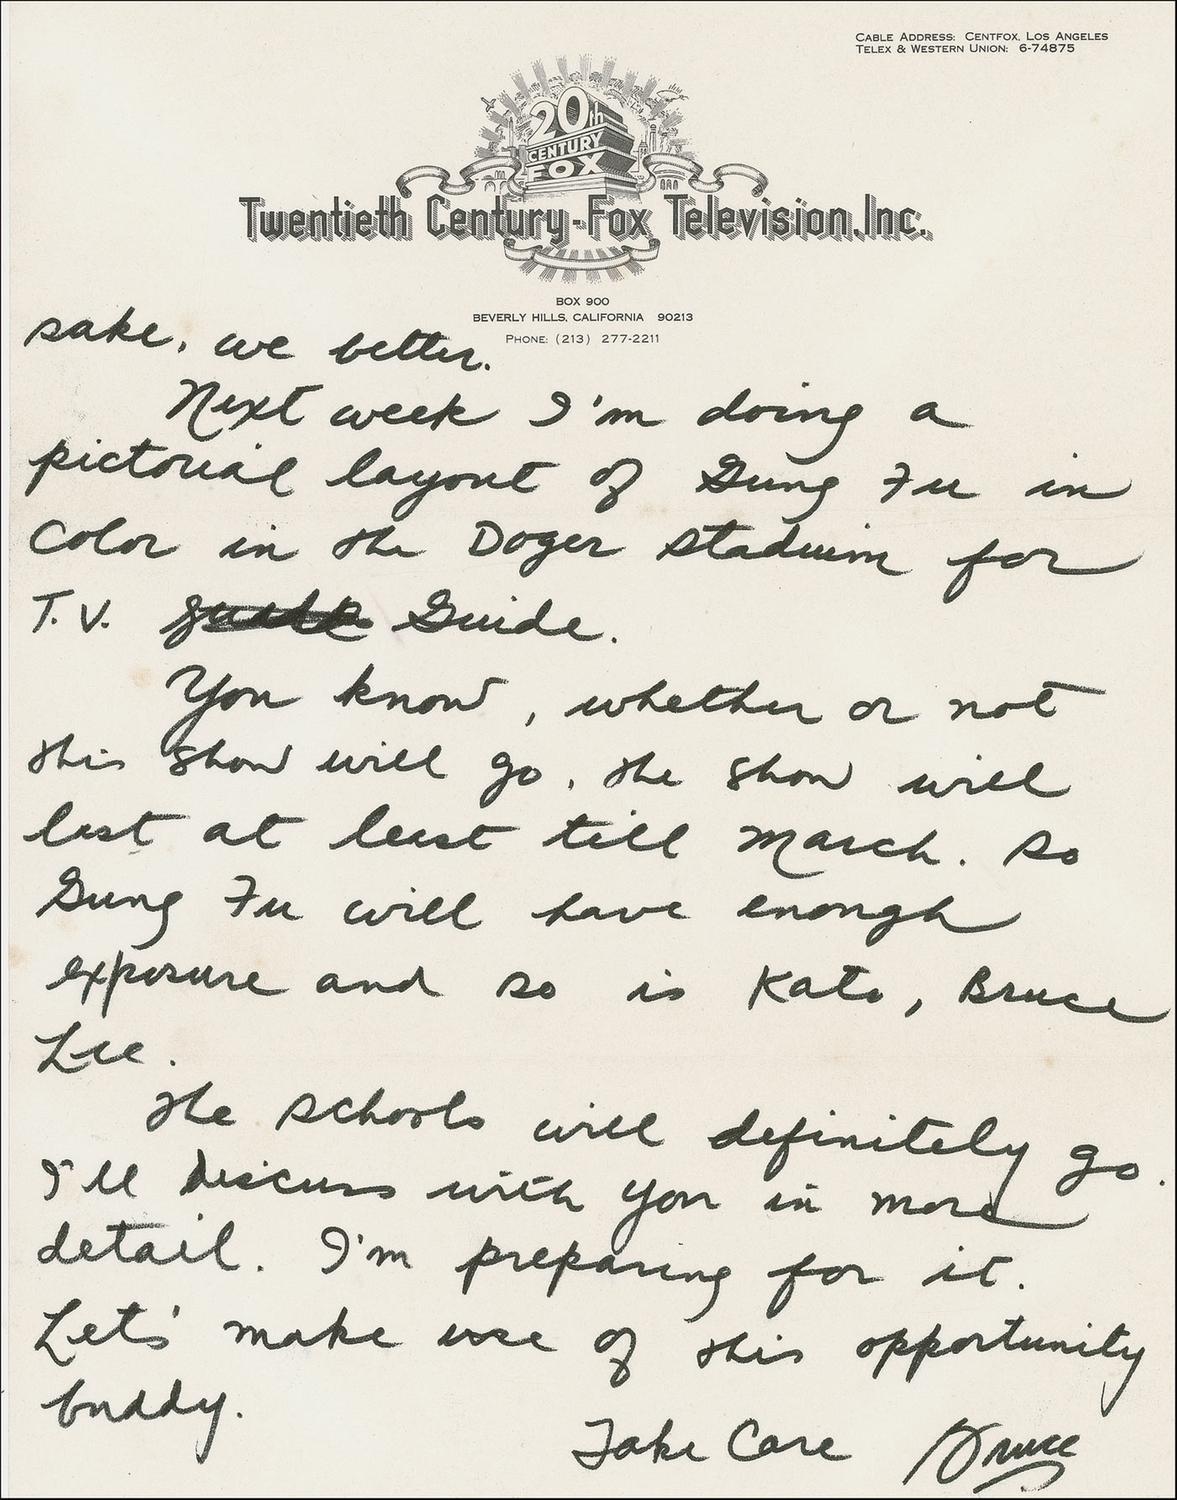 CABLE ADDRESS: CENTFOX, LOS ANGELES
TELEX & WESTERN UNION: 6-74875
20th
CENTURY
FOX
Twentieth Century-Fox Television, Inc.
BOX 900
BEVERLY HILLS, CALIFORNIA 90213
PHONE: (213) 277-2211
sake, we better.
Next week I'm doing a
pictorial layout of Gung Fu in
Color in the Doger Stadium for
T.V. Guide.
You know, whether or not
this show will go, the show will
last at least till March. So
Gung Fu will have enough
exposure and so is Kato, Bruce
Lee.
The schools will definitely go.
I'll Discuss with you in more
detail. I'm preparing for it.
Lets' make use of this opportunity
buddy.
Take Care Bruce